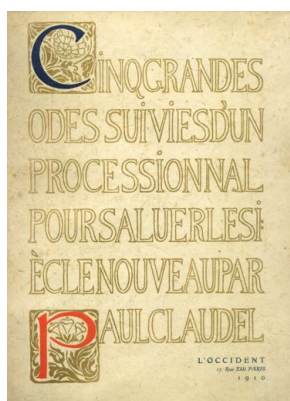 CINQ GRANDES
ODES SUIVIES D'UN
PROCESSIONNAL
POUR SALUER LE SI-
ÈCLE NOUVEAU PAR
PAUL CLAUDEL
L'OCCIDENT
17, Rue Eblé PARIS
1910